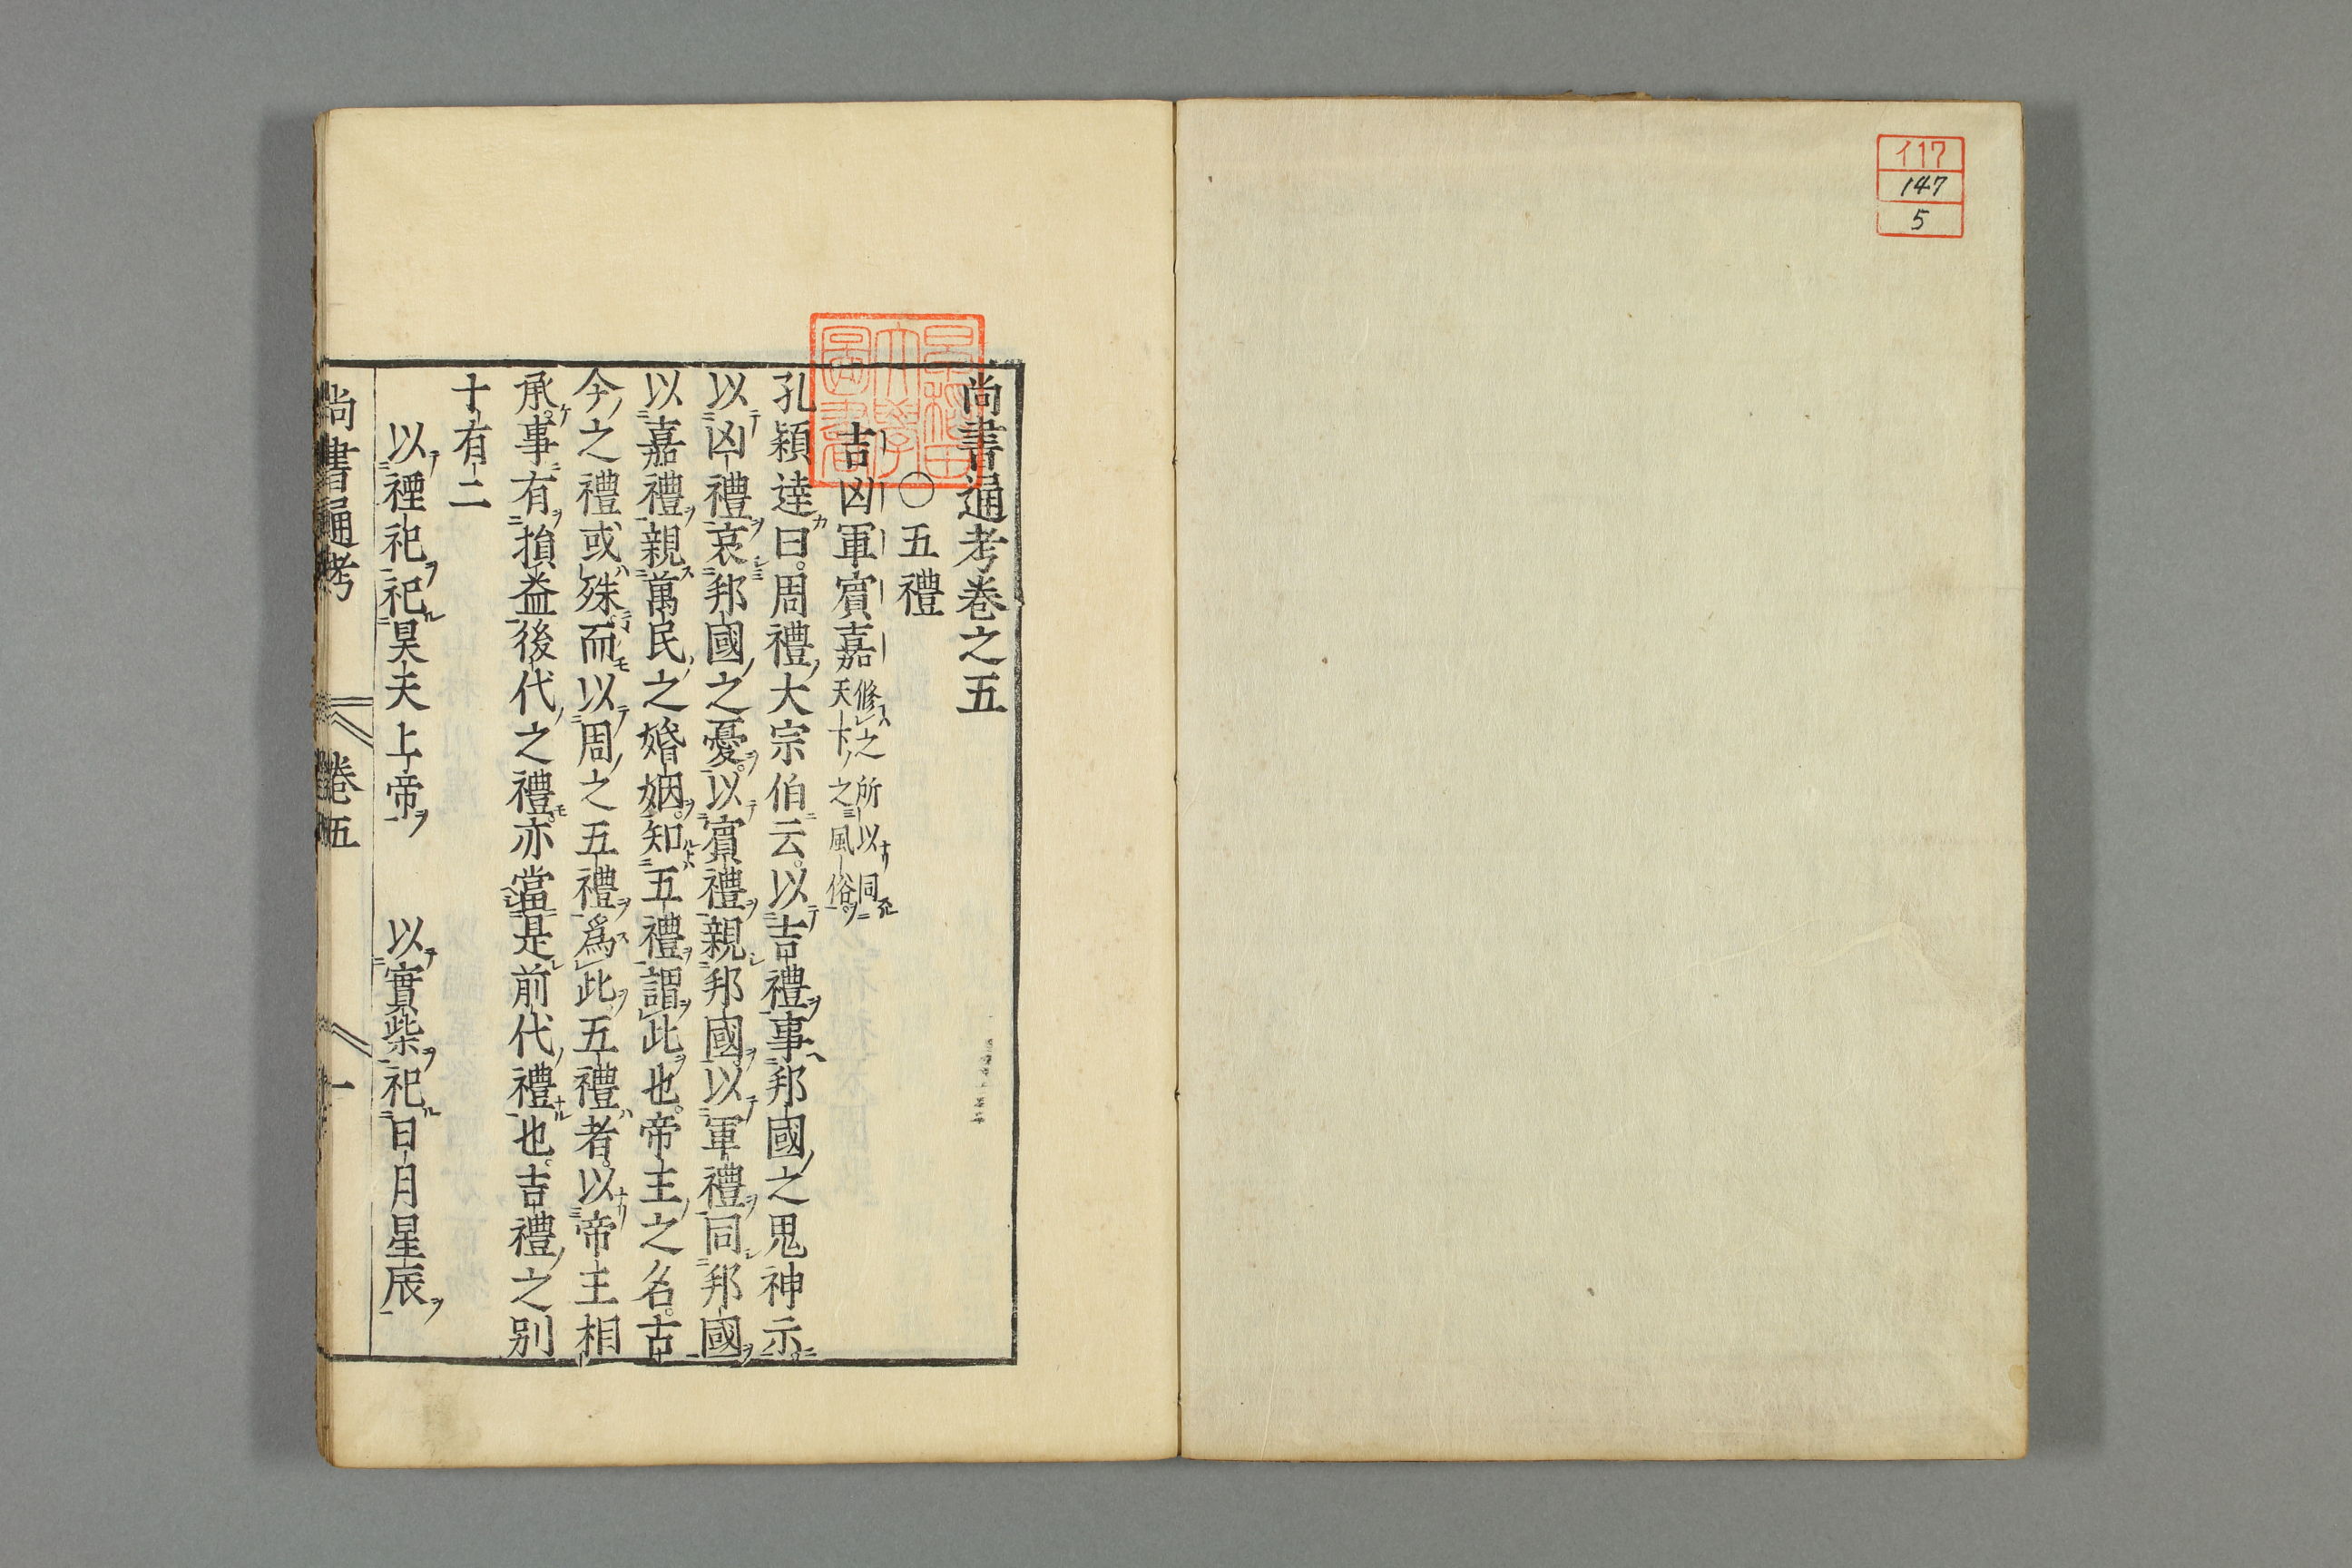 イ17
147
5
尚書通考卷之五
○五禮
吉凶軍賓嘉 修之所以同天下之風俗
孔穎逹曰周禮大宗伯云以吉禮事邦國之鬼神示
以凶禮哀邦國之憂以賓禮親邦國以軍禮同邦國
以嘉禮親萬民之婚姻知五禮謂此也帝主之名古
今之禮或殊而以周之五禮爲此五禮者以帝主相
承事有損益後代之禮亦當是前代禮也吉禮之别
十有二
以禋祀祀昊天上帝 以實柴祀日月星辰
尚書通考 卷五 一
早稲田大學圖書